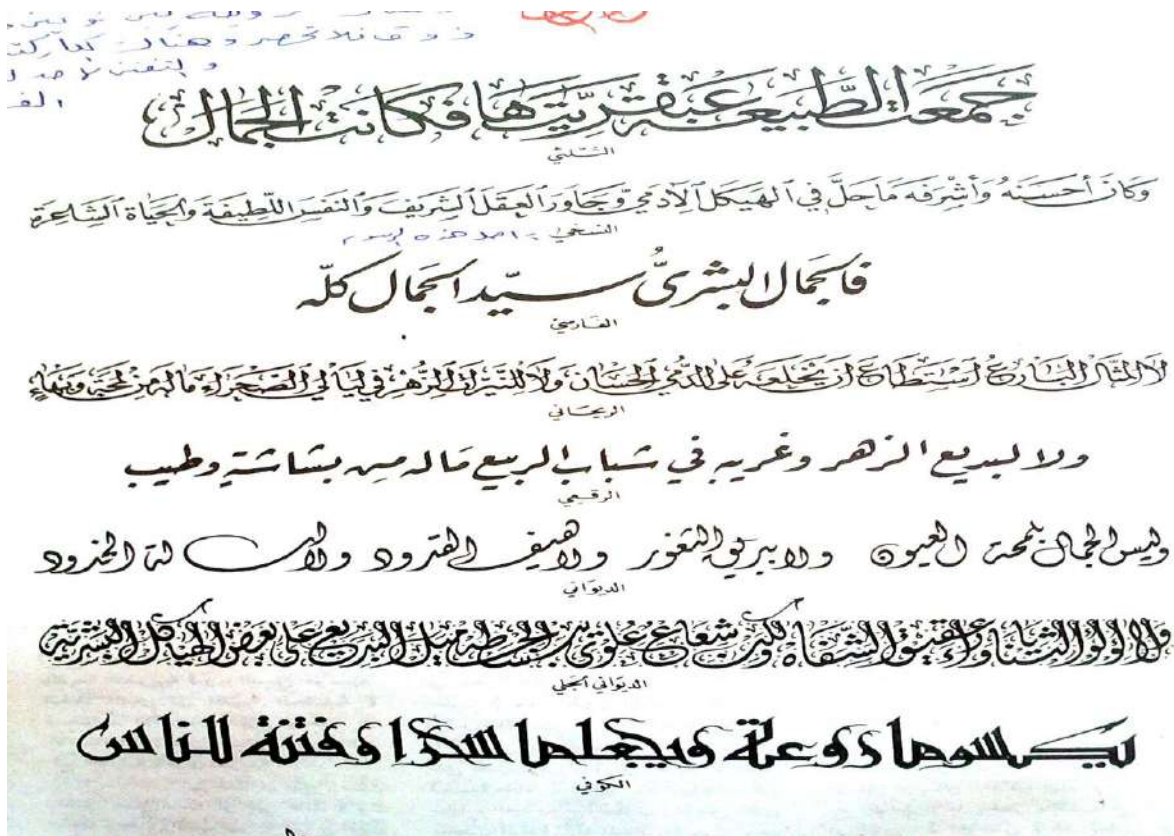 ذوق فلا تحصر وهناك
جمعت الطبيعة عبقريّتها فكانت الجمال
الثلثي
وَكَانَ أَحْسَنَهُ وَأَشْرَفَه مَا حَلَّ فِي ٱلهَيكَلِ ٱلآدَمِيّ وَجَاوَرَ ٱلعَقلَ ٱلشَريفَ وَٱلنَفسَ اللَّطِيفَةَ وَٱلحَيَاةَ ٱلشَّاعِرَةَ
النسخي
فالجمال البشريُّ سيّد الجمال كلّه
الفارسي
لا المثّال البارع استطاع أن يخلعه على الدمى الحسان ولا للنيّرات الزُهر في ليالي الصحراء ماله من لمحة وبهاء
الريحاني
ولا لبديع الزهر وغريبه في شباب الربيع ماله من بشاشة وطيب
الرقعي
وليس الجمال بلمحة العيون ولا ببريق الثغور ولا هيف القدود ولا أسالة الخدود
الديواني
ولا لؤلؤ الثنايا وعقيق الشفاه ولكن شعاع علوي يبسطه الجميل البديع على بعض الهياكل البشرية
الديواني الجلي
يكسوها روعة ويجعلها سحرا وفتنة للناس
الكوفي